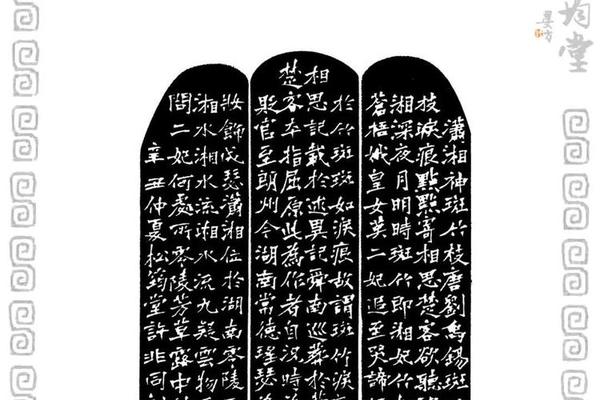 瀟湘神斑竹枝唐劉禹錫斑
枝淚痕點點寄相思楚客欲聽
湘深夜月明時斑竹即湘妃竹
蒼梧娥皇女英二妃追至哭諦
於竹斑斑如淚痕故謂斑竹淚
相思記載於述異記舜南巡葬於
楚客本指屈原此為作者自況時
貶官至朗州今湖南常德瑤瑟
妝飾成瑟瀟湘位於湖南零陵
湘水湘水流湘水流九疑雲物
問二妃何處所零陵芳草露中
辛丑仲夏松筠堂許非同
堂